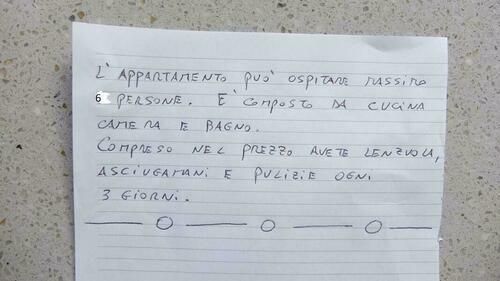 L'APPARTAMENTO PUO' OSPITARE MASSIMO
6 PERSONE. E' COMPOSTO DA CUCINA
CAMERA E BAGNO.
COMPRESO NEL PREZZO AVETE LENZUOLA,
ASCIUGAMANI E PULIZIE OGNI
3 GIORNI.